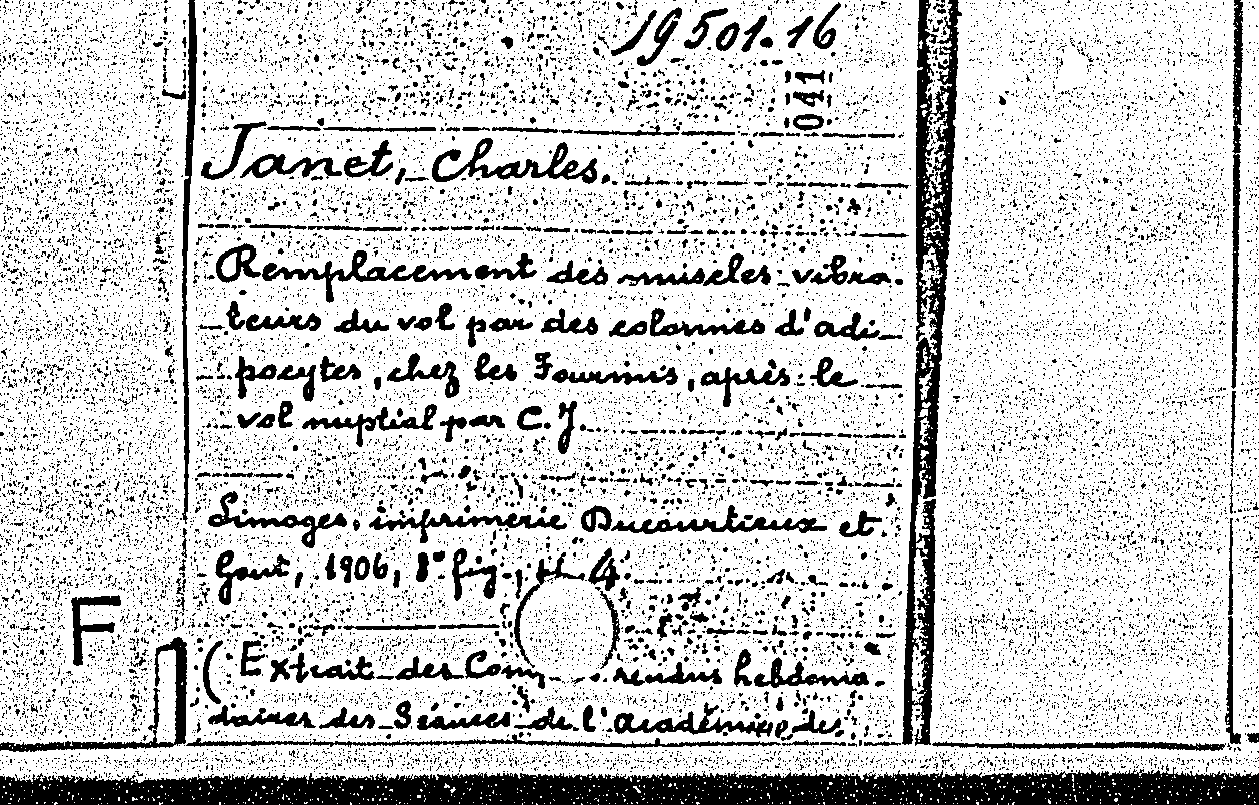 19501.16
041
Janet, Charles.
Remplacement des muscles vibra-
teurs du vol par des colonnes d'adi-
pocytes, chez les Fourmis, après le
vol nuptial par C. J.
Limoges, imprimerie Ducourtieux et
Gout, 1906, 8° fig., 4.
F
(Extrait des Comp rendus hebdoma-
daires des Séances de l'Académie des